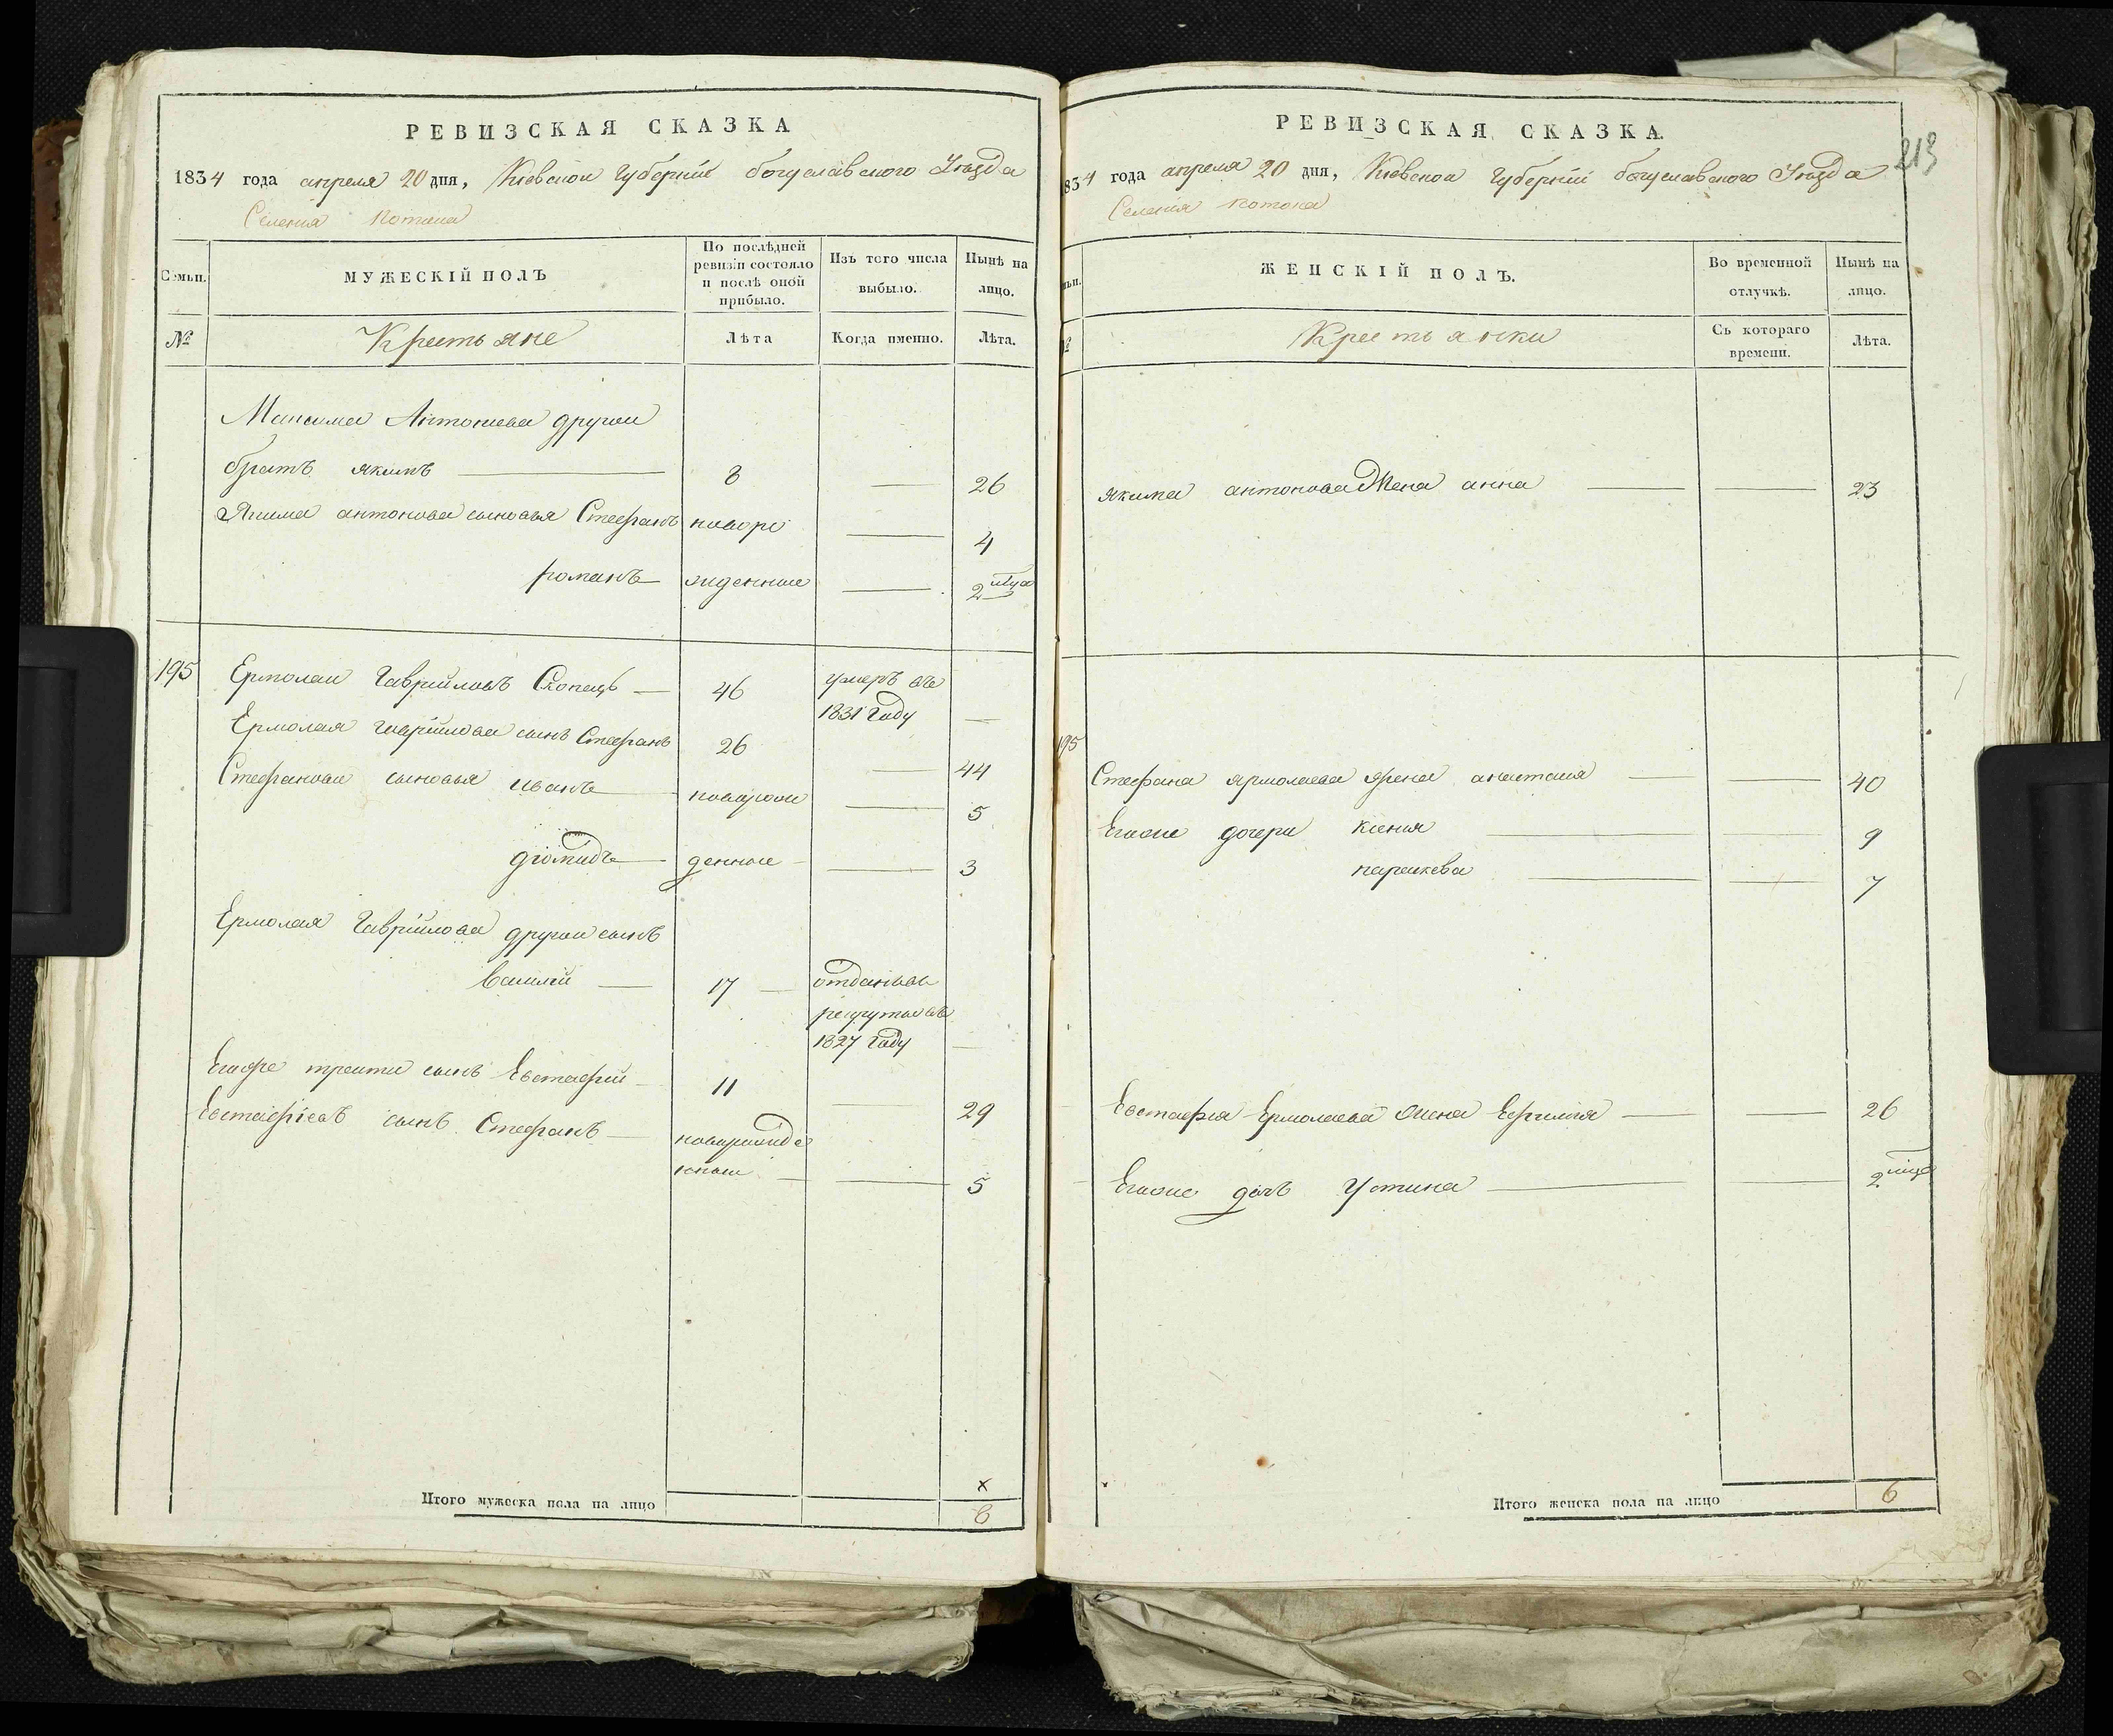 РЕВИЗСКАЯ СКАЗКА
1834 года апреля 20 дня, Кіевской Губерніи богуславского Уезда
Селенія Потока
Семьи.
МУЖЕСКІЙ ПОЛЪ
По послѣдней ревизіи состояло и послѣ оной прибыло.
Изъ того числа выбыло.
Нынѣ на лицо.
№
Крестьяне
Лѣта
Когда именно.
Лѣта.
Максима Антонова другой
братъ якимъ 8 26
Якима антонова сыновья Стефанъ новоро 4
романъ жденные 2
195 Ермолай Гавриловъ Скопецъ 46 умеръ въ
1831 Году
Ермолая гаврилова сынъ Стефанъ 26 44
Стефановы сыновья иванъ новорож 5
діомидъ денные 3
Ермолая Гаврилова другой сынъ
василій 17 отданъ въ
рекруты въ
1827 Году
Егоже трети сынъ Евстафій 11 29
Евстафіевъ сынъ Стефанъ новорожде
нный 5
Итого мужеска пола на лицо
6
РЕВИЗСКАЯ СКАЗКА.
213
834 года апреля 20 дня, Кіевской Губерніи богуславского Уезда
Селенія потока
ЖЕНСКІЙ ПОЛЪ.
Во временной отлучкѣ.
Нынѣ на лицо.
№
Крестьянки
Съ котораго времени.
Лѣта.
якима антонова Жена анна 23
195
Стефана ярмолаева жена анастасия 40
Егоже дочери ксения 9
параскева 7
Евстафія Ермолаева жена Ефимія 26
Егоже дочь Устина 2
Итого женска пола на лицо
6